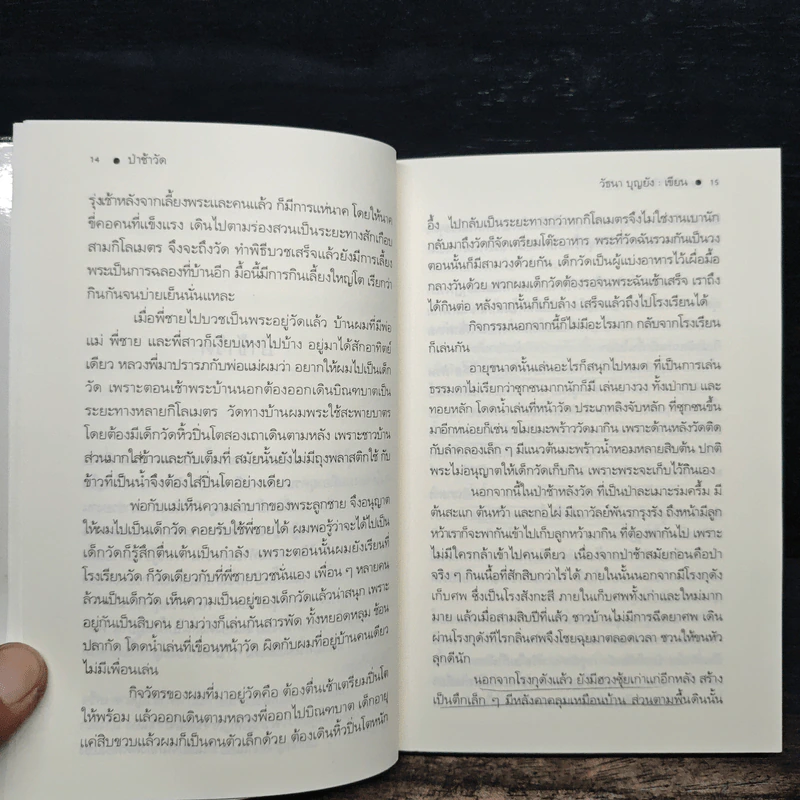 14 ● ป่าช้าวัด
รุ่งเช้าหลังจากเลี้ยงพระและคนแล้ว ก็มีการแห่นาค โดยให้นาค
ขี่คอคนที่แข็งแรง เดินไปตามร่องสวนเป็นระยะทางสักเกือบ
สามกิโลเมตร จึงจะถึงวัด ทำพิธีบวชเสร็จแล้วยังมีการเลี้ยง
พระเป็นการฉลองที่บ้านอีก มื้อนี้มีการกินเลี้ยงใหญ่โต เรียกว่า
กินกันจนบ่ายเย็นนั่นแหละ
เมื่อพี่ชายไปบวชเป็นพระอยู่วัดแล้ว บ้านผมที่มีพ่อ
แม่ พี่ชาย และพี่สาวก็เงียบเหงาไปบ้าง อยู่มาได้สักอาทิตย์
เดียว หลวงพี่มาปรารภกับพ่อแม่ผมว่า อยากให้ผมไปเป็นเด็ก
วัด เพราะตอนเช้าพระบ้านนอกต้องออกเดินบิณฑบาตเป็น
ระยะทางหลายกิโลเมตร วัดทางบ้านผมพระใช้สะพายบาตร
โดยต้องมีเด็กวัดหิ้วปิ่นโตสองเถาเดินตามหลัง เพราะชาวบ้าน
ส่วนมากใส่ข้าวและกับเต็มที่ สมัยนั้นยังไม่มีถุงพลาสติกใช้ กับ
ข้าวที่เป็นน้ำจึงต้องใส่ปิ่นโตอย่างเดียว
พ่อกับแม่เห็นความลำบากของพระลูกชาย จึงอนุญาต
ให้ผมไปเป็นเด็กวัด คอยรับใช้พี่ชายได้ ผมพอรู้ว่าจะได้ไปเป็น
เด็กวัดก็รู้สึกตื่นเต้นเป็นกำลัง เพราะตอนนั้นผมยังเรียนที่
โรงเรียนวัด ก็วัดเดียวกับที่พี่ชายบวชนั่นเอง เพื่อน ๆ หลายคน
ล้วนเป็นเด็กวัด เห็นความเป็นอยู่ของเด็กวัดแล้วน่าสนุก เพราะ
อยู่กันเป็นสิบคน ยามว่างก็เล่นกันสารพัด ทั้งหยอดหลุม ช้อน
ปลากัด โดดน้ำเล่นที่เขื่อนหน้าวัด ผิดกับผมที่อยู่บ้านคนเดียว
ไม่มีเพื่อนเล่น
กิจวัตรของผมที่มาอยู่วัดคือ ต้องตื่นเช้าเตรียมปิ่นโต
ให้พร้อม แล้วออกเดินตามหลวงพี่ออกไปบิณฑบาต เด็กอายุ
แค่สิบขวบแล้วผมก็เป็นคนตัวเล็กด้วย ต้องเดินหิ้วปิ่นโตหนัก
วัธนา บุญยัง : เขียน ● 15
อึ้ง ไปกลับเป็นระยะทางกว่าหกกิโลเมตรจึงไม่ใช่งานเบานัก
กลับมาถึงวัดก็จัดเตรียมโต๊ะอาหาร พระที่วัดฉันรวมกันเป็นวง
ตอนนั้นก็มีสามวงด้วยกัน เด็กวัดเป็นผู้แบ่งอาหารไว้เผื่อมื้อ
กลางวันด้วย พวกผมเด็กวัดต้องรอจนพระฉันเช้าเสร็จ เราถึง
ได้กินต่อ หลังจากนั้นก็เก็บล้าง เสร็จแล้วถึงไปโรงเรียนได้
กิจกรรมนอกจากนี้ก็ไม่มีอะไรมาก กลับจากโรงเรียน
ก็เล่นกัน
อายุขนาดนั้นเล่นอะไรก็สนุกไปหมด ที่เป็นการเล่น
ธรรมดาไม่เรียกว่าซุกซนมากนักก็มี เล่นยางวง ทั้งเป่ากบ และ
ทอยหลัก โดดน้ำเล่นที่หน้าวัด ประเภทลิงจับหลัก ที่ซุกซนขึ้น
มาอีกหน่อยก็เช่น ขโมยมะพร้าววัดมากิน เพราะด้านหลังวัดติด
กับลำคลองเล็ก ๆ มีแนวต้นมะพร้าวน้ำหอมหลายสิบต้น ปกติ
พระไม่อนุญาตให้เด็กวัดเก็บกิน เพราะพระจะเก็บไว้กินเอง
นอกจากนี้ในป่าช้าหลังวัด ที่เป็นป่าละเมาะร่มครึ้ม มี
ต้นสะแก ต้นหว้า และกอไผ่ มีเถาวัลย์พันรกรุงรัง ถึงหน้ามีลูก
หว้าเราก็จะพากันเข้าไปเก็บลูกหว้ามากิน ที่ต้องพากันไป เพราะ
ไม่มีใครกล้าเข้าไปคนเดียว เนื่องจากป่าช้าสมัยก่อนคือป่า
จริง ๆ กินเนื้อที่สักสิบกว่าไร่ได้ ภายในนั้นนอกจากมีโรงกุดัง
เก็บศพ ซึ่งเป็นโรงสังกะสี ภายในเก็บศพทั้งเก่าและใหม่มาก
มาย แล้วเมื่อสามสิบปีที่แล้ว ชาวบ้านไม่มีการฉีดยาศพ เดิน
ผ่านโรงกุดังทีไรกลิ่นศพจึงโชยฉุยมาตลอดเวลา ชวนให้ขนหัว
ลุกดีนัก
นอกจากโรงกุดังแล้ว ยังมีฮวงซุ้ยเก่าแก่อีกหลัง สร้าง
เป็นตึกเล็ก ๆ มีหลังคาคลุมเหมือนบ้าน ส่วนตามพื้นดินนั้น